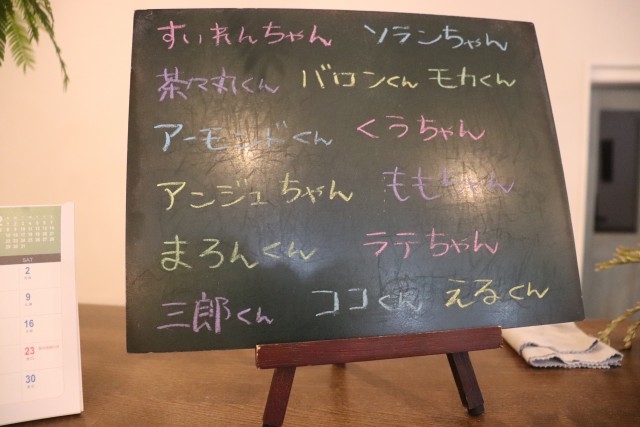 すいれんちゃん ソランちゃん
茶々丸くん バロンくん モカくん
アーモンドくん くうちゃん
アンジュちゃん ももちゃん
まろんくん ラテちゃん
三郎くん ココくん えるくん
SAT
2
9
16
23
30